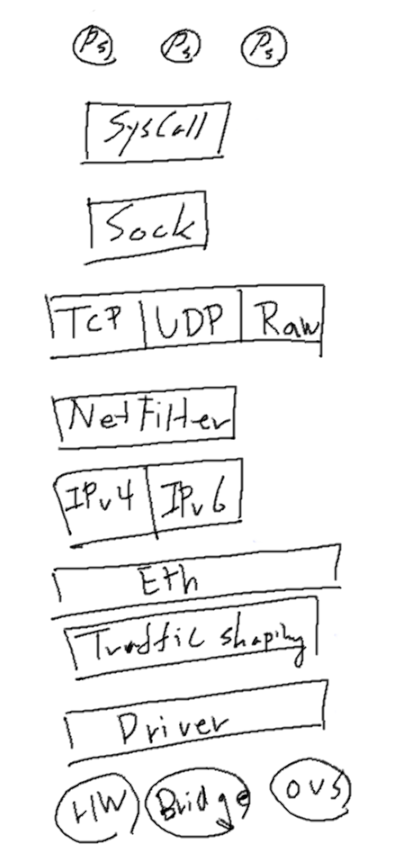 Ps Ps Ps
SysCall
Sock
TCP UDP Raw
NetFilter
IPv4 IPv6
Eth
Traffic shaping
Driver
HW Bridge OVS